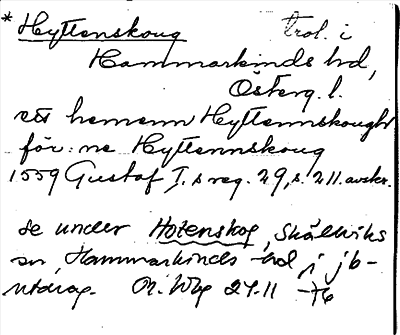 * Hyttenskoug trol. i
Hammarkinds hd,
Österg. l.
ett hemenn Hyttennskought
för: ne Hyttennskoug
1559 Gustaf I.s reg. 29, s. 211. avskr.
se under Hotenskog, Skällviks
sn, Hammarkinds hd, i jb-
utdrag. 24.11 -76